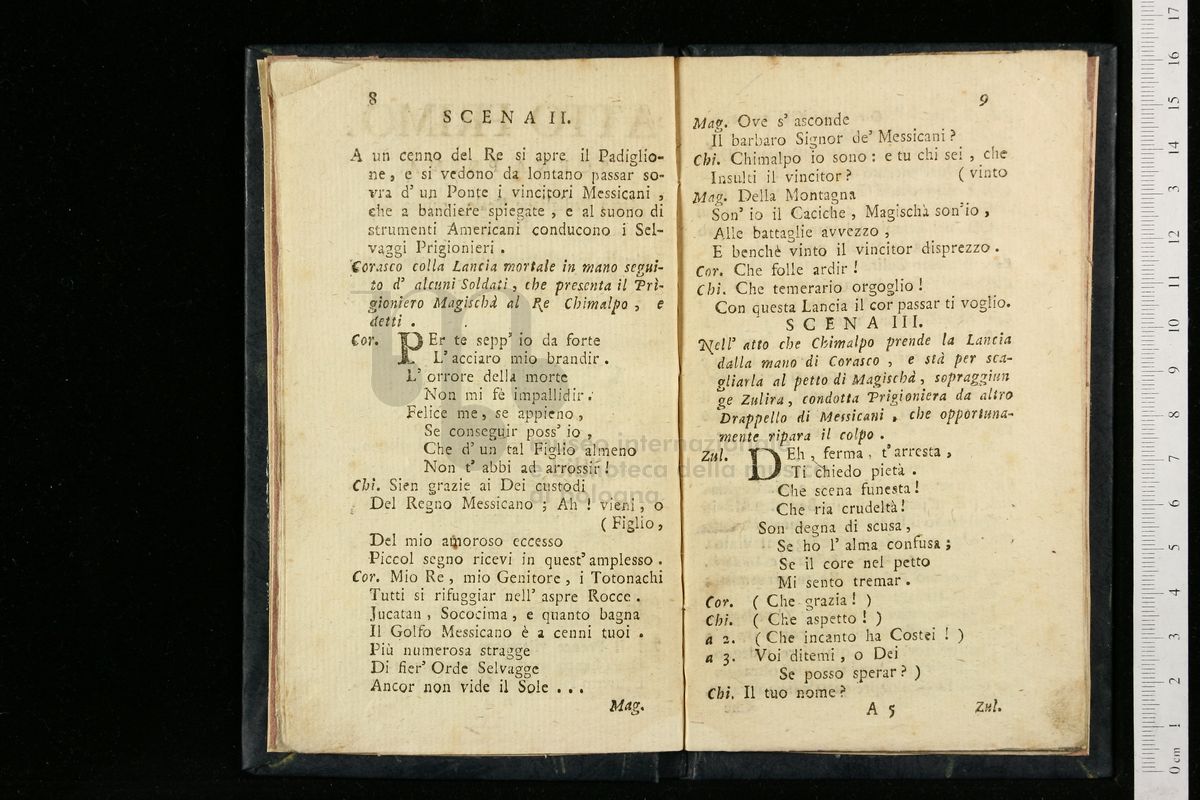 8
SCENA II.
A un cenno del Re si apre il Padiglio-
ne, e si vedono da lontano passar so-
vra d' un Ponte i vincitori Messicani,
che a bandiere spiegate, e al suono di
strumenti Americani conducono i Sel-
vaggi Prigionieri.
Corasco colla Lancia mortale in mano segui-
to d' alcuni Soldati, che presenta il Pri-
gioniero Magischà al Re Chimalpo, e
detti.
Cor. PEr te sepp' io da forte
L' acciaro mio brandir.
L' orrore della morte
Non mi fè impallidir.
Felice me, se appieno,
Se conseguir poss' io,
Che d' un tal Figlio almeno
Non t' abbi ad arrossir!
Chi. Sien grazie ai Dei custodi
Del Regno Messicano; Ah! vieni, o
( Figlio,
Del mio amoroso eccesso
Piccol segno ricevi in quest' amplesso.
Cor. Mio Re, mio Genitore, i Totonachi
Tutti si rifuggiar nell' aspre Rocce.
Jucatan, Sococima, e quanto bagna
Il Golfo Messicano è a cenni tuoi.
Più numerosa stragge
Di fier' Orde Selvagge
Ancor non vide il Sole ...
Mag.
9
Mag. Ove s' asconde
Il barbaro Signor de' Messicani?
Chi. Chimalpo io sono: e tu chi sei, che
Insulti il vincitor? ( vinto
Mag. Della Montagna
Son' io il Caciche, Magischà son' io,
Alle battaglie avvezzo,
E benchè vinto il vincitor disprezzo.
Cor. Che folle ardir!
Chi. Che temerario orgoglio!
Con questa Lancia il cor passar ti voglio.
SCENA III.
Nell' atto che Chimalpo prende la Lancia
dalla mano di Corasco, e stà per sca-
gliarla al petto di Magischà, sopraggiun
ge Zulira, condotta Prigioniera da altro
Drappello di Messicani, che opportuna-
mente ripara il colpo.
Zul. DEh, ferma, t' arresta,
Ti chiedo pietà.
Che scena funesta!
Che ria crudeltà!
Son degna di scusa,
Se ho l' alma confusa;
Se il core nel petto
Mi sento tremar.
Cor. ( Che grazia! )
Chi. ( Che aspetto! )
a 2. ( Che incanto ha Costei! )
a 3. Voi ditemi, o Dei
Se posso sperar? )
Chi. Il tuo nome?
A 5 Zul.
museo internazionale
e biblioteca della musica
di bologna
0 cm 1 2 3 4 5 6 7 8 9 10 11 12 13 14 15 16 17